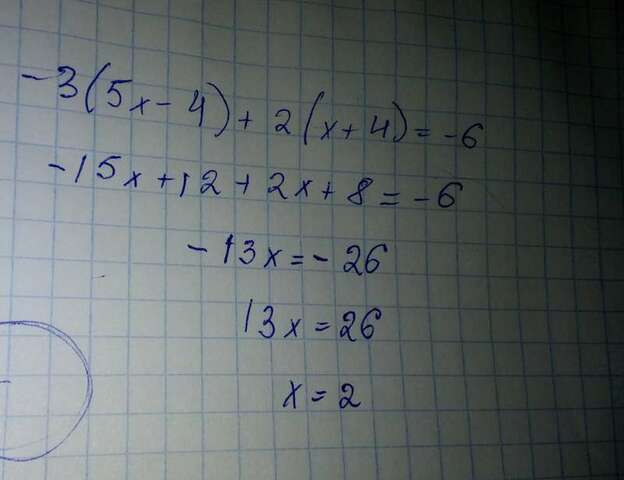 -3(5x-4)+2(x+4)=-6
-15x+12+2x+8=-6
-13x=-26
13x=26
x=2